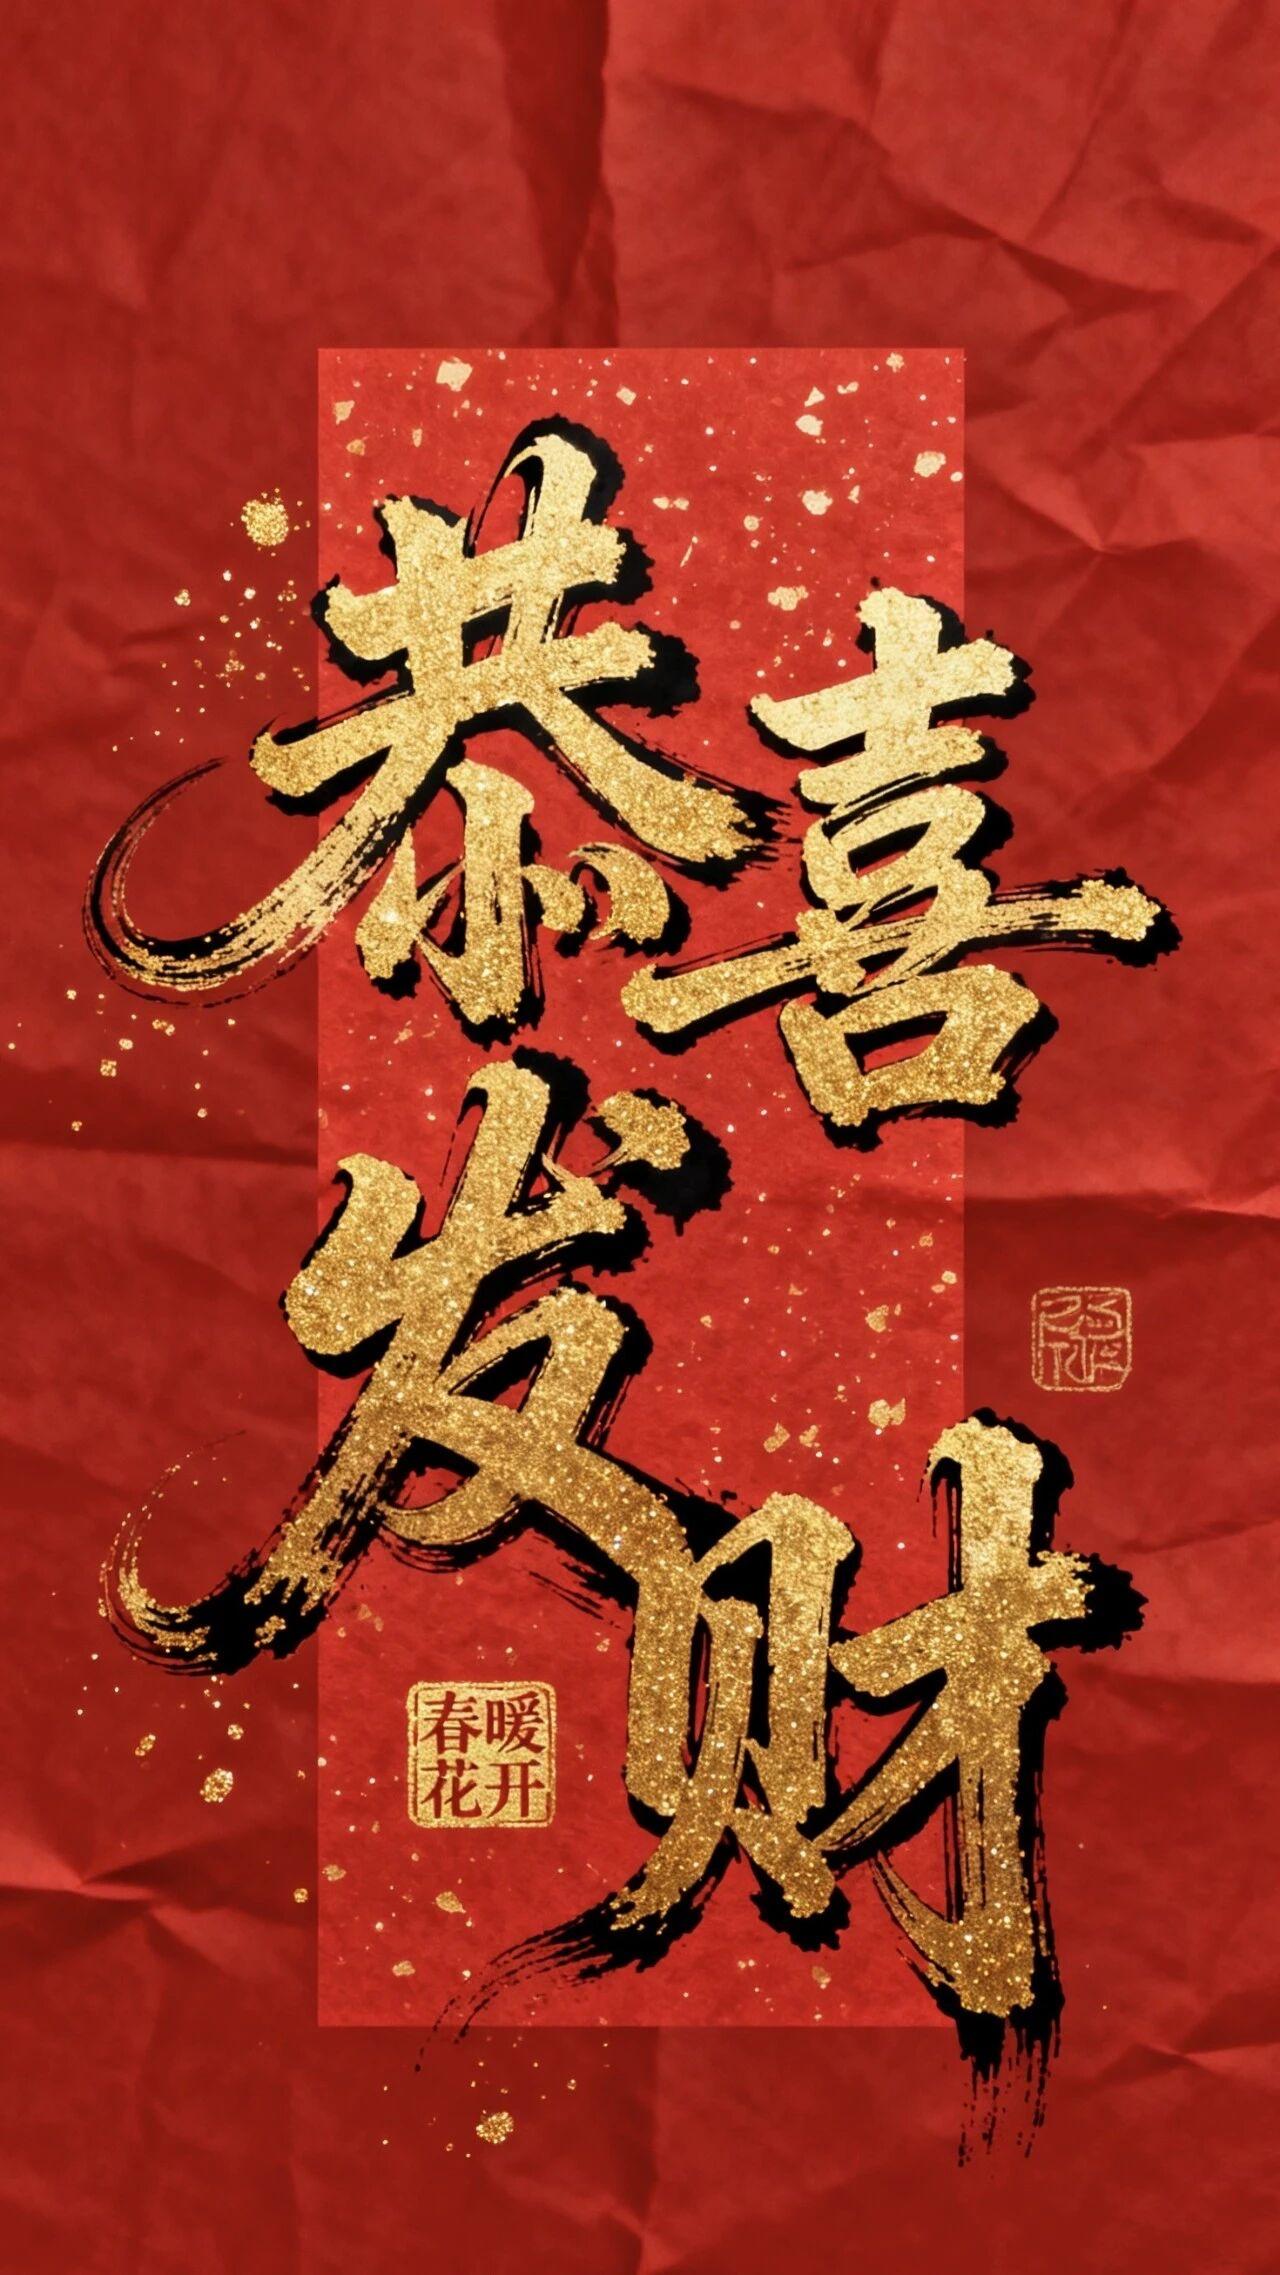 恭喜
发财
春暖
花开